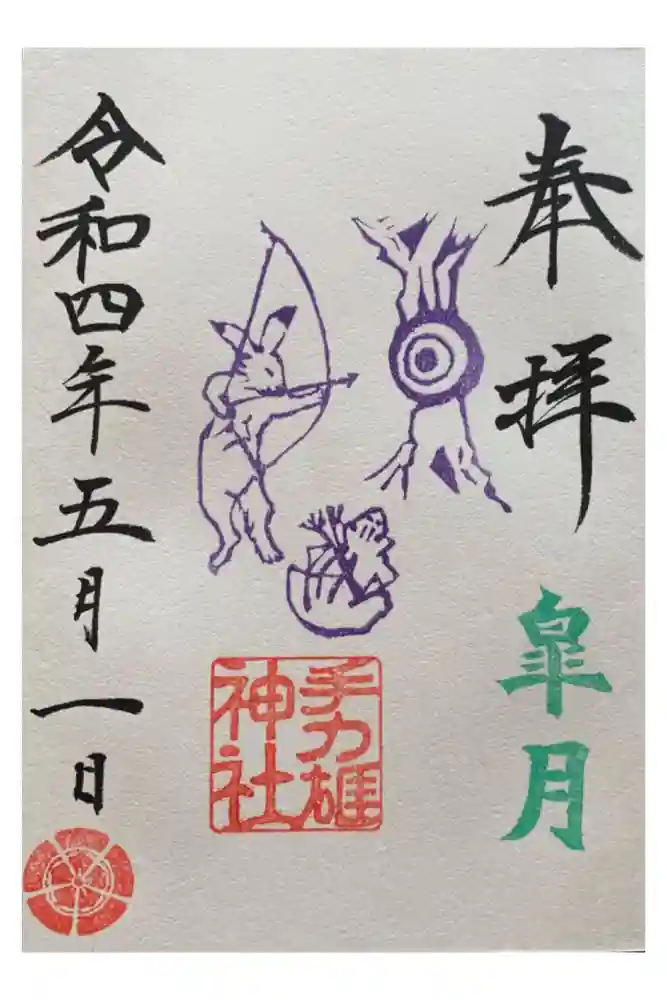 奉拝
皐月
手力雄
神社
令和四年五月一日